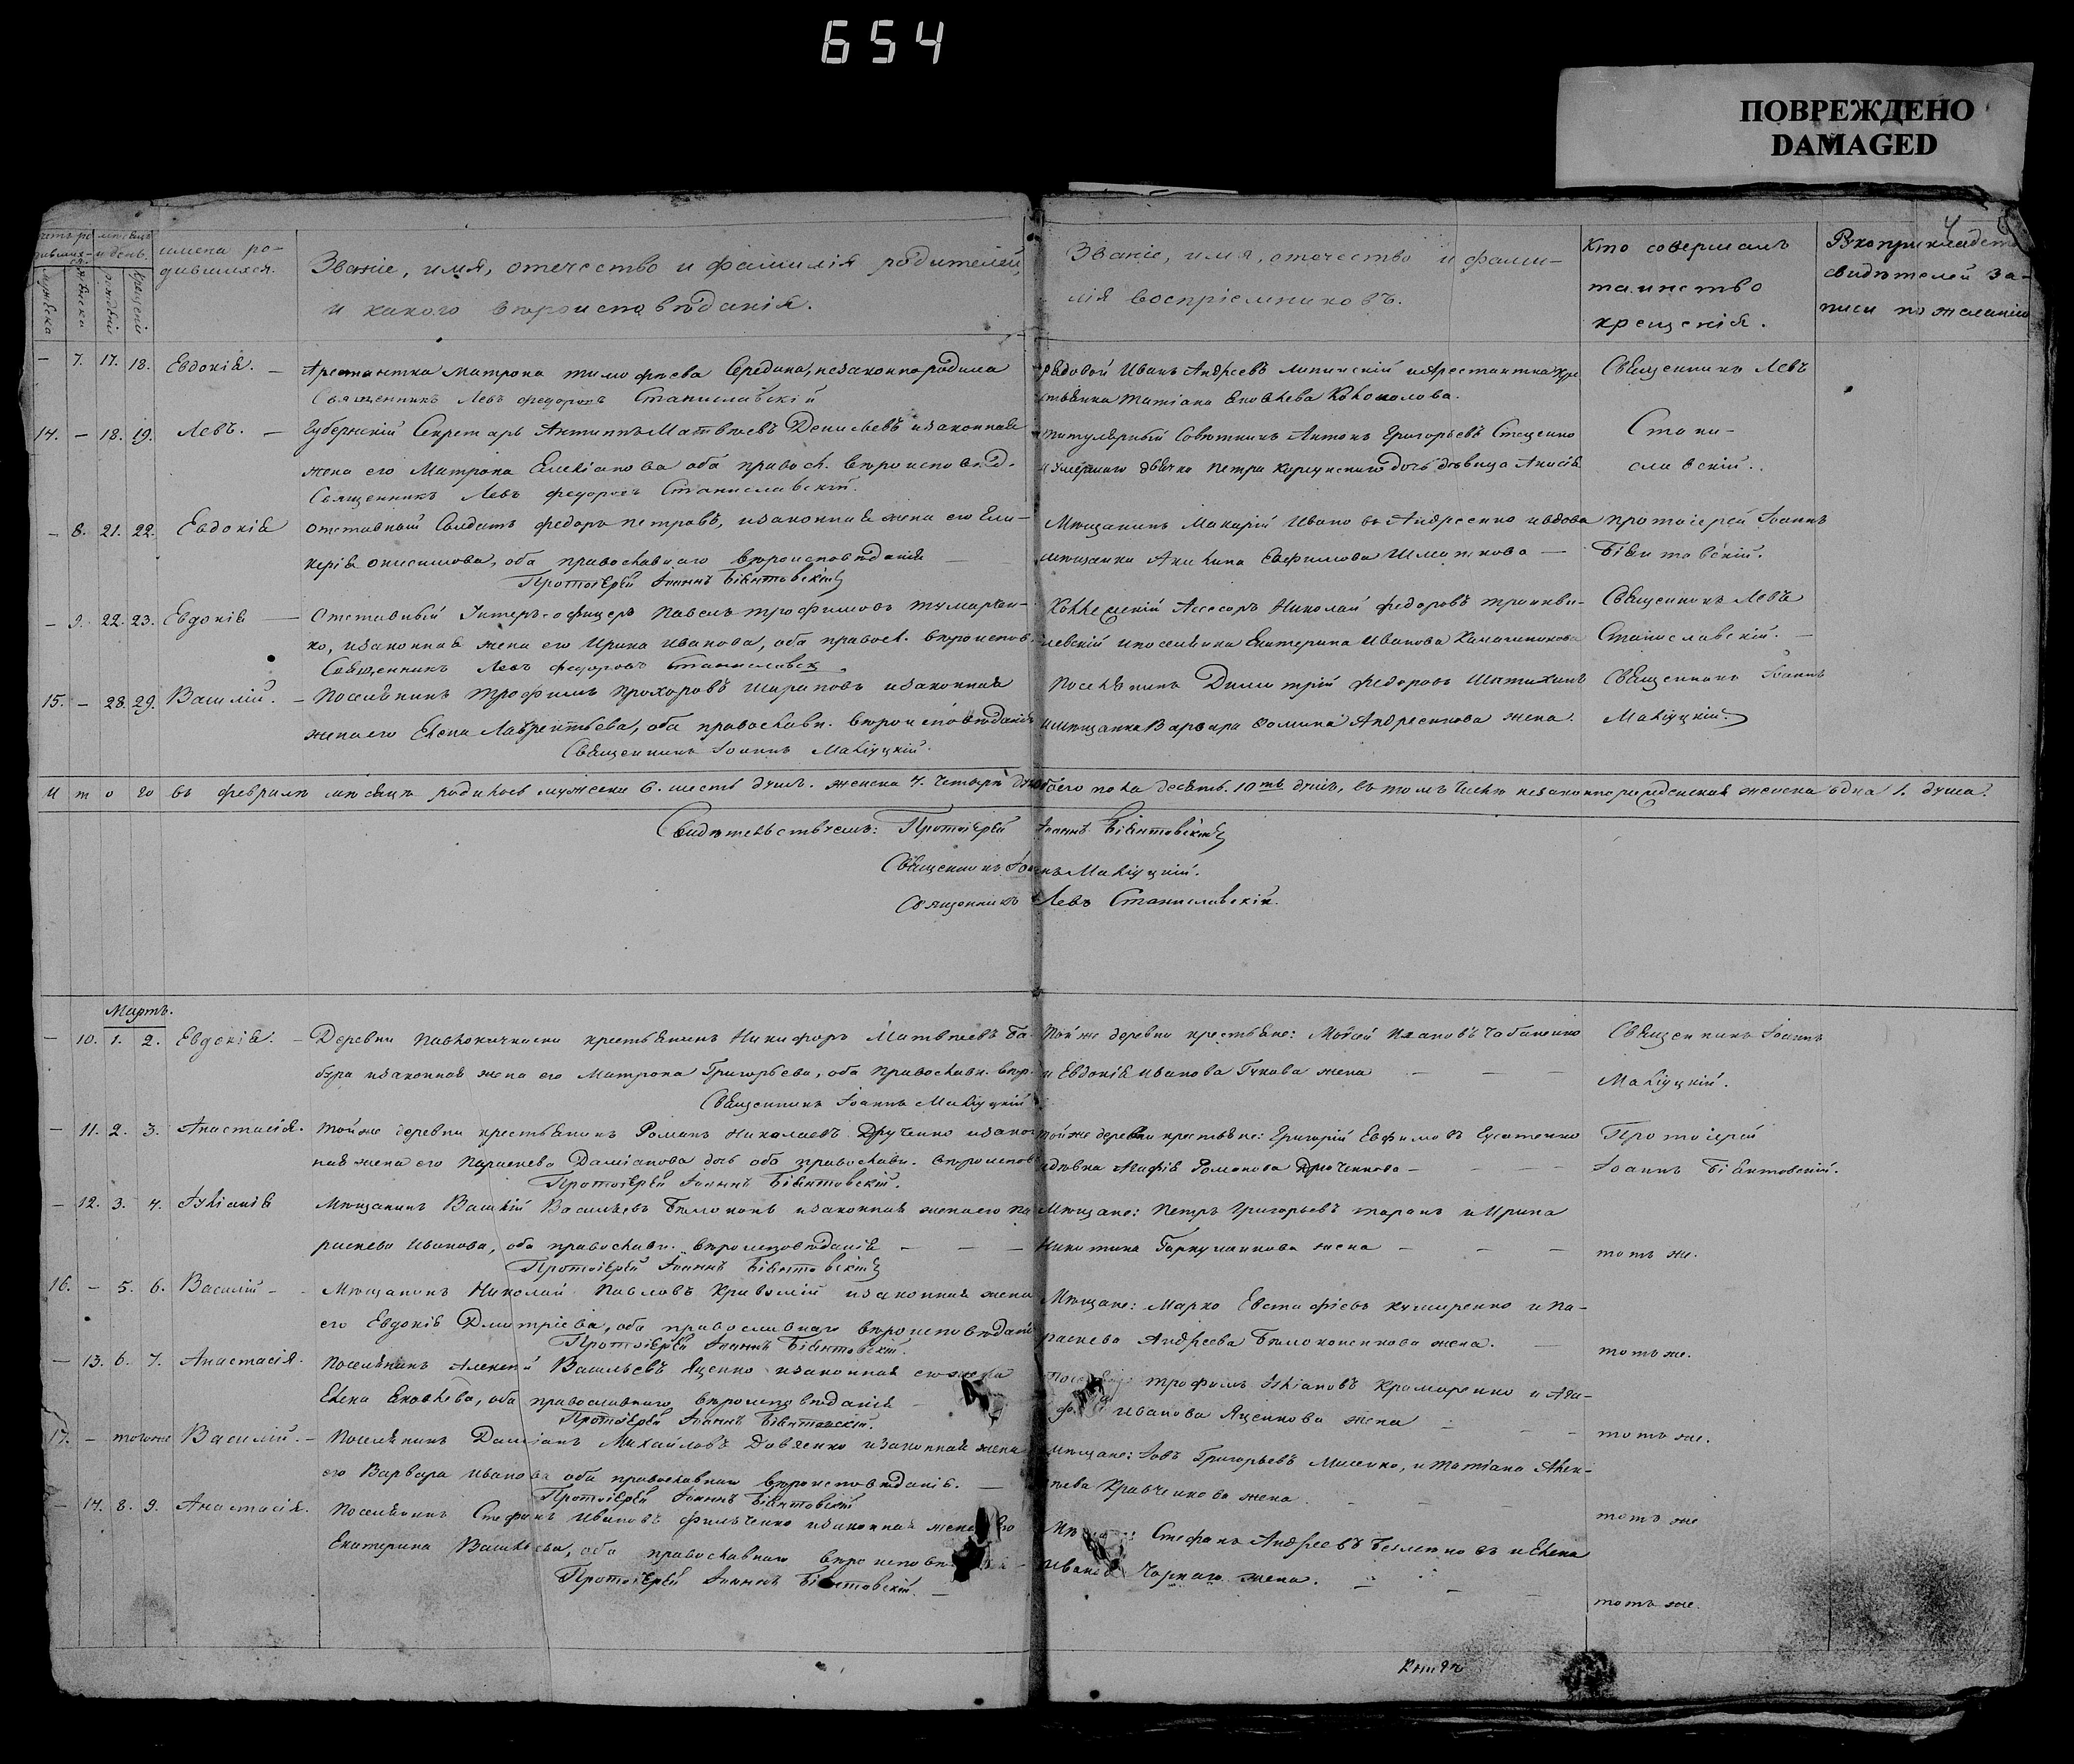 654
ПОВРЕЖДЕНО
DAMAGED
4
имена ро-
дившихся.
Званіе, имя, отечество и фамилія родителей,
и какого вѣроисповѣданія.
Званіе, имя, отечество и фами-
лія воспріемниковъ.
Кто совершалъ
таинство
крещенія.
свидѣтелей за-
писи по желанію
– 7. 17. 18. Евдокія. – Арестантка Матрона Тимофѣева Середина, незаконнородила
Священникъ Левъ Федоровъ Станиславскій
рядовой Иванъ Андреевъ Липинскій и Арестантка Кре
стьянка Татіана Яковлева
Священникъ Левъ
14. – 18. 19. Левъ. – Губернскій Секретарь Антипъ Матвѣевъ Денисьевъ и законная
жена его Матрона Емеліанова оба правосл. вѣроисповѣд.
Священникъ Левъ Федоровъ Станиславскій.
титулярный Совѣтникъ Антонъ Григорьевъ Стеценко
и умершаго дьячка Петра дочь дѣвица Анисія
Стани-
славскій.
– 8. 21. 22. Евдокія отставный Солдатъ Федоръ Петровъ, и законная жена его Гли-
керія Онисимова, оба православнаго вѣроисповѣданія –
Протоіерей Іоаннъ Біянтовскій
Мѣщанинъ Макарій Ивановъ Андреенко и вдова
мѣщанка Акилина Евфимова Шматкова –
протоіерей Іоаннъ
Біянтовскій.
– 9. 22. 23. Евдокія – Отставный Унтеръ-офицеръ Павелъ Трофимовъ Тумаркен-
ко, и законная жена его Ирина Иванова, оба правосл. вѣроиспов.
Священникъ Левъ Федоровъ Станиславск
Коллежскій Ассесоръ Николай Федоровъ
левскій и поселянка Екатерина Иванова Калашникова
Священникъ Левъ
Станиславскій. –
15. – 28. 29. Василій. – Поселянинъ Трофимъ Прохоровъ Шараповъ и законная
жена его Елена Лаврентьева, оба православн. вѣроисповѣданія
Священникъ Іоаннъ Маліуцкій.
Поселянинъ Димитрій Федоровъ Шатихинъ
и мѣщанка Варвара Фомина Андреенкова жена.
Священникъ Іоаннъ
Маліуцкій.
Итого въ февралѣ мѣсяцѣ родилось мужеска 6. шесть душъ. женска 4. четыре души обоего пола десять. 10ть душъ, въ томъ числѣ незаконнорожденная женска одна 1. душа.
Свидѣтельствуемъ: Протоіерей Іоаннъ Біянтовскій
Священникъ Іоаннъ Маліуцкій.
Священникъ Левъ Станиславскій.
Мартъ.
– 10. 1. 2. Евдокія. – Деревни крестьянинъ Никифоръ Матвѣевъ Ба
бура и законная жена его Матрона Григорьева, оба православн. вѣр.
Священникъ Іоаннъ Маліуцкій
той же деревни крестьяне: Мойсей Ивановъ Чабаненко
и Евдокія Иванова Гукова жена – – –
Священникъ Іоаннъ
Маліуцкій.
– 11. 2. 3. Анастасія. той же деревни крестьянинъ Романъ Николаевъ Друченко и закон
ная жена его Параскева Даміанова оба православн. вѣроиспов
Протоіерей Іоаннъ Біянтовскій.
той же деревни крестьяне: Григорій Евфимовъ
и дѣвка Марія Романова – – – –
Протоіерей
Іоаннъ Біянтовскій.
– 12. 3. 4. Іуліанія Мѣщанинъ Василій Васильевъ Бѣлоконь и законная жена его Па
раскева Иванова, оба православн. вѣроисповѣданія – – –
Протоіерей Іоаннъ Біянтовскій
Мѣщане: Петръ Григорьевъ Таранъ и Ирина
Никитина жена – – –
тотъ же.
16. – 5. 6. Василій – Мѣщанинъ Николай Павловъ и законная жена
его Евдокія Дмитріева, оба православнаго вѣроисповѣданія
Протоіерей Іоаннъ Біянтовскій.
Мѣщане: Марко Евстафіевъ Кушниренко и Па-
раскева Андреева Бѣлоконенкова жена. –
тотъ же.
– 13. 6. 7. Анастасія. Поселянинъ Алексей Васильевъ Яценко и законная его жена
Елена Яковлева, оба православнаго вѣроисповѣданія –
Протоіерей Іоаннъ Біянтовскій.
Трофимъ Іуліановъ Крамаренко и Ага-
Иванова Яценкова жена – – –
тотъ же.
17. – тогоже Василій. – Поселянинъ Даміанъ Михайловъ Довженко и законная жена
его Варвара Иванова оба православнаго вѣроисповѣданія. –
Протоіерей Іоаннъ Біянтовскій
Мѣщане: Іовъ Григорьевъ Мисенко, и Татіана Алек-
сѣева Кравченкова жена. – – –
тотъ же
– 14. 8. 9. Анастасія. Поселянинъ Стефанъ Ивановъ Фильченко и законная жена его
Екатерина Васильева, оба православнаго –
Протоіерей Іоаннъ Біянтовскій. –
Стефанъ Андреевъ и Елена
Иванова Чорнаго жена. – – –
тотъ же.